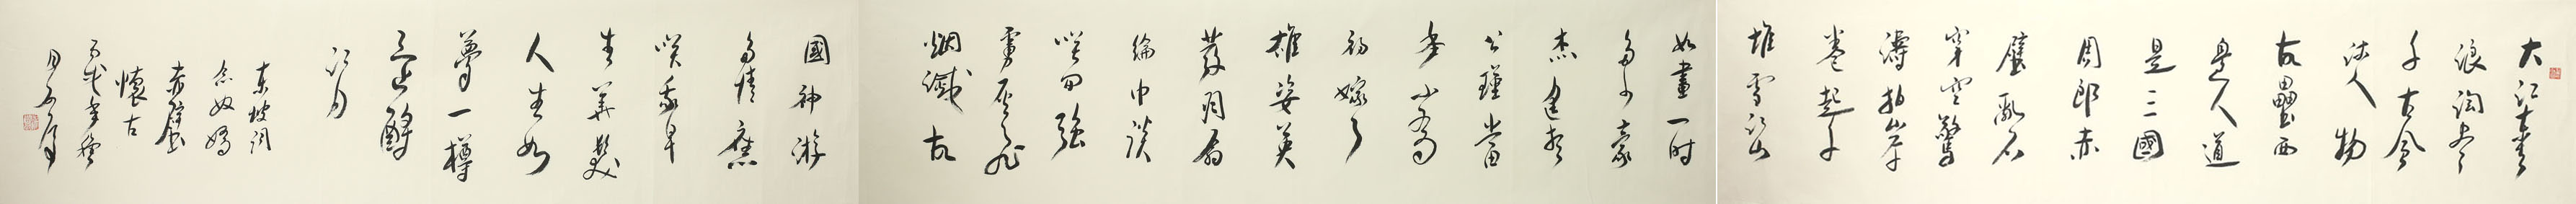 大江東去
浪淘尽
千古風
流人物
故壘西
邊人道
是三國
周郎赤
壁亂石
穿空驚
濤拍岸
卷起千
堆雪江山
如畫一時
多少豪
杰遥想
公瑾當
年小喬
初嫁了
雄姿英
發羽扇
綸巾談
笑間強
虜灰飛
烟滅故
國神游
多情應
笑我早
生華髮
人生如
夢一樽
還酹
江月
東坡詞
念奴嬌
赤壁
懷古